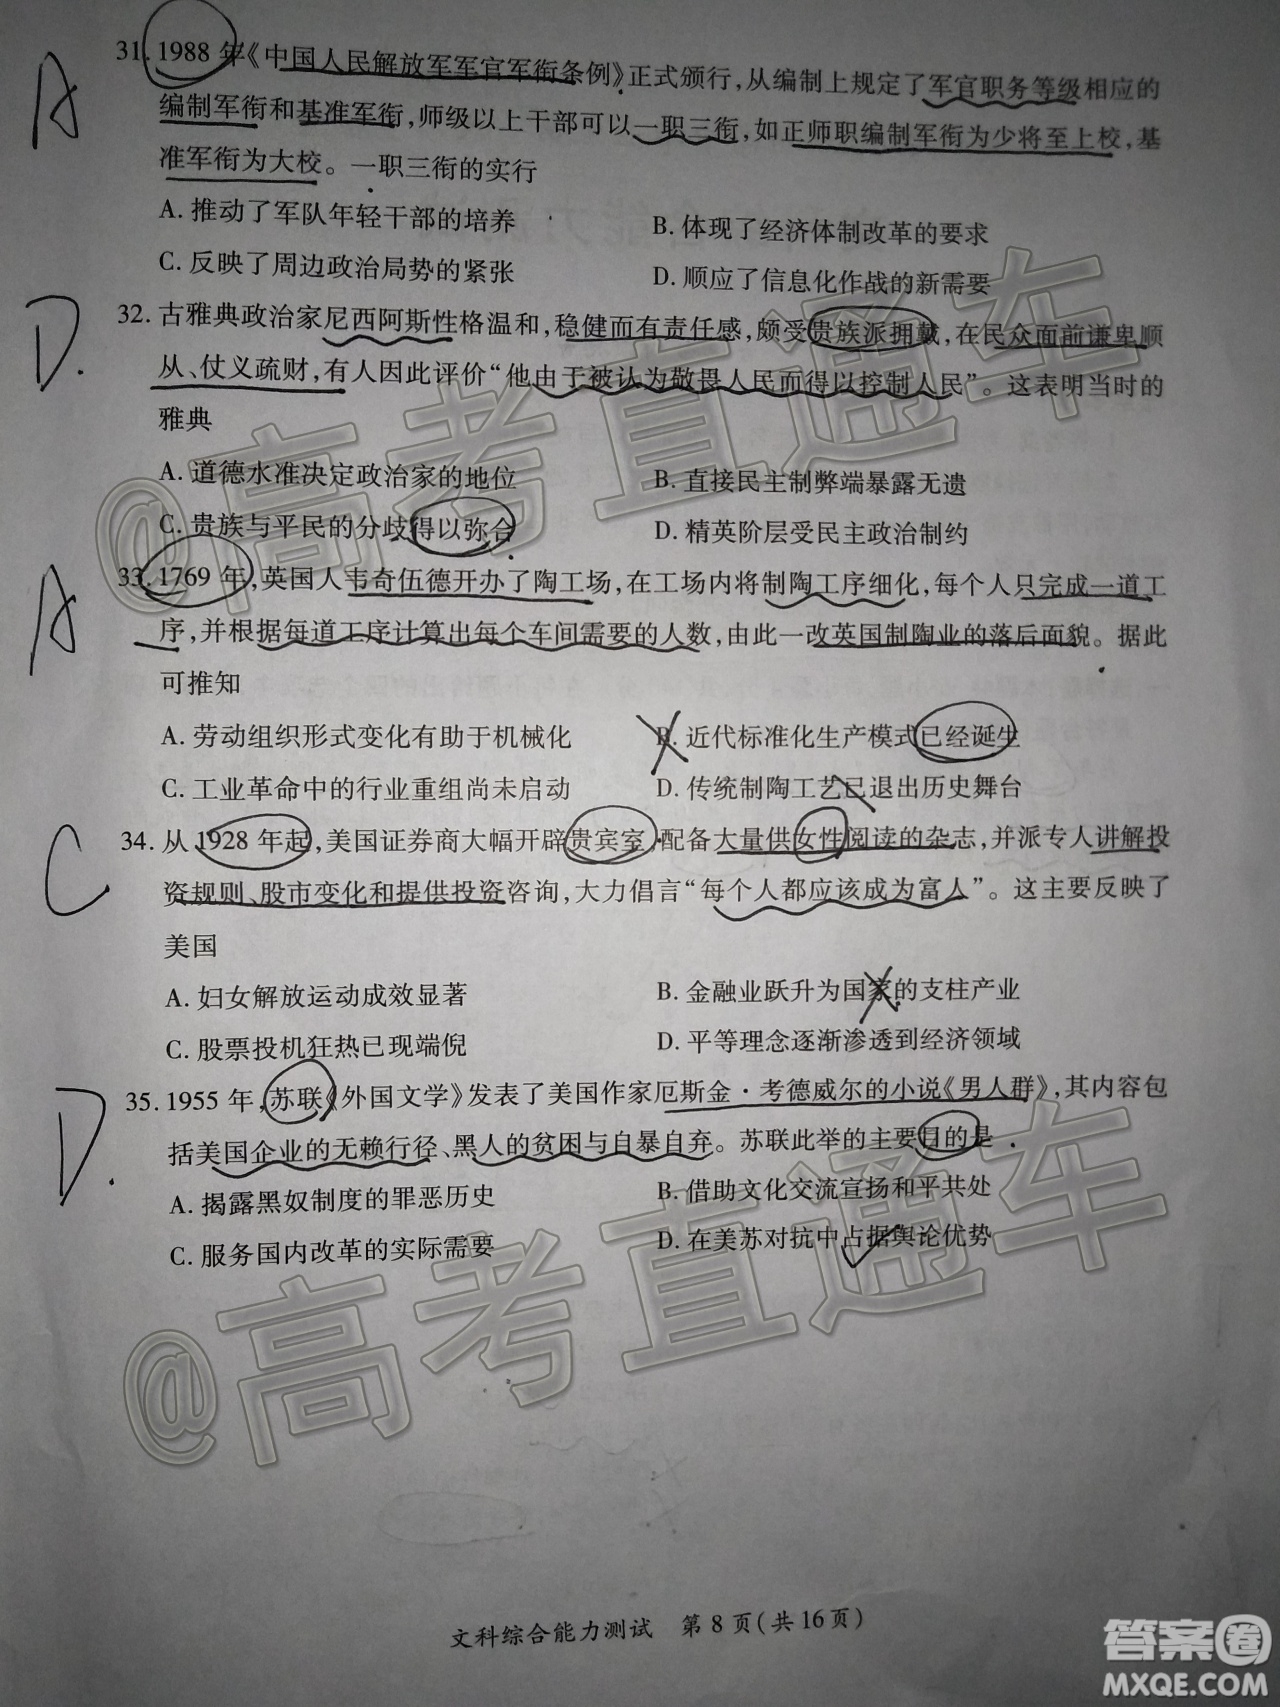 A
31. 1988年《中国人民解放军军官军衔条例》正式颁行,从编制上规定了军官职务等级相应的
编制军衔和基准军衔,师级以上干部可以一职三衔,如正师职编制军衔为少将至上校,基
准军衔为大校。一职三衔的实行
A. 推动了军队年轻干部的培养
B. 体现了经济体制改革的要求
C. 反映了周边政治局势的紧张
D. 顺应了信息化作战的新需要
D.
32. 古雅典政治家尼西阿斯性格温和,稳健而有责任感,颇受贵族派拥戴,在民众面前谦卑顺
从、仗义疏财,有人因此评价“他由于被认为敬畏人民而得以控制人民”。这表明当时的
雅典
A. 道德水准决定政治家的地位
B. 直接民主制弊端暴露无遗
C. 贵族与平民的分歧得以弥合
D. 精英阶层受民主政治制约
A
33. 1769年,英国人韦奇伍德开办了陶工场,在工场内将制陶工序细化,每个人只完成一道工
序,并根据每道工序计算出每个车间需要的人数,由此一改英国制陶业的落后面貌。据此
可推知
A. 劳动组织形式变化有助于机械化
B. 近代标准化生产模式已经诞生
C. 工业革命中的行业重组尚未启动
D. 传统制陶工艺已退出历史舞台
C
34. 从1928年起,美国证券商大幅开辟贵宾室,配备大量供女性阅读的杂志,并派专人讲解投
资规则、股市变化和提供投资咨询,大力倡言“每个人都应该成为富人”。这主要反映了
美国
A. 妇女解放运动成效显著
B. 金融业跃升为国家的支柱产业
C. 股票投机狂热已现端倪
D. 平等理念逐渐渗透到经济领域
D.
35. 1955年,苏联《外国文学》发表了美国作家厄斯金·考德威尔的小说《男人群》,其内容包
括美国企业的无赖行径、黑人的贫困与自暴自弃。苏联此举的主要目的是
A. 揭露黑奴制度的罪恶历史
B. 借助文化交流宣扬和平共处
C. 服务国内改革的实际需要
D. 在美苏对抗中占据舆论优势
@高考直通车
@高考直通车
文科综合能力测试 第8页(共16页)
答案圈
MXQE.COM